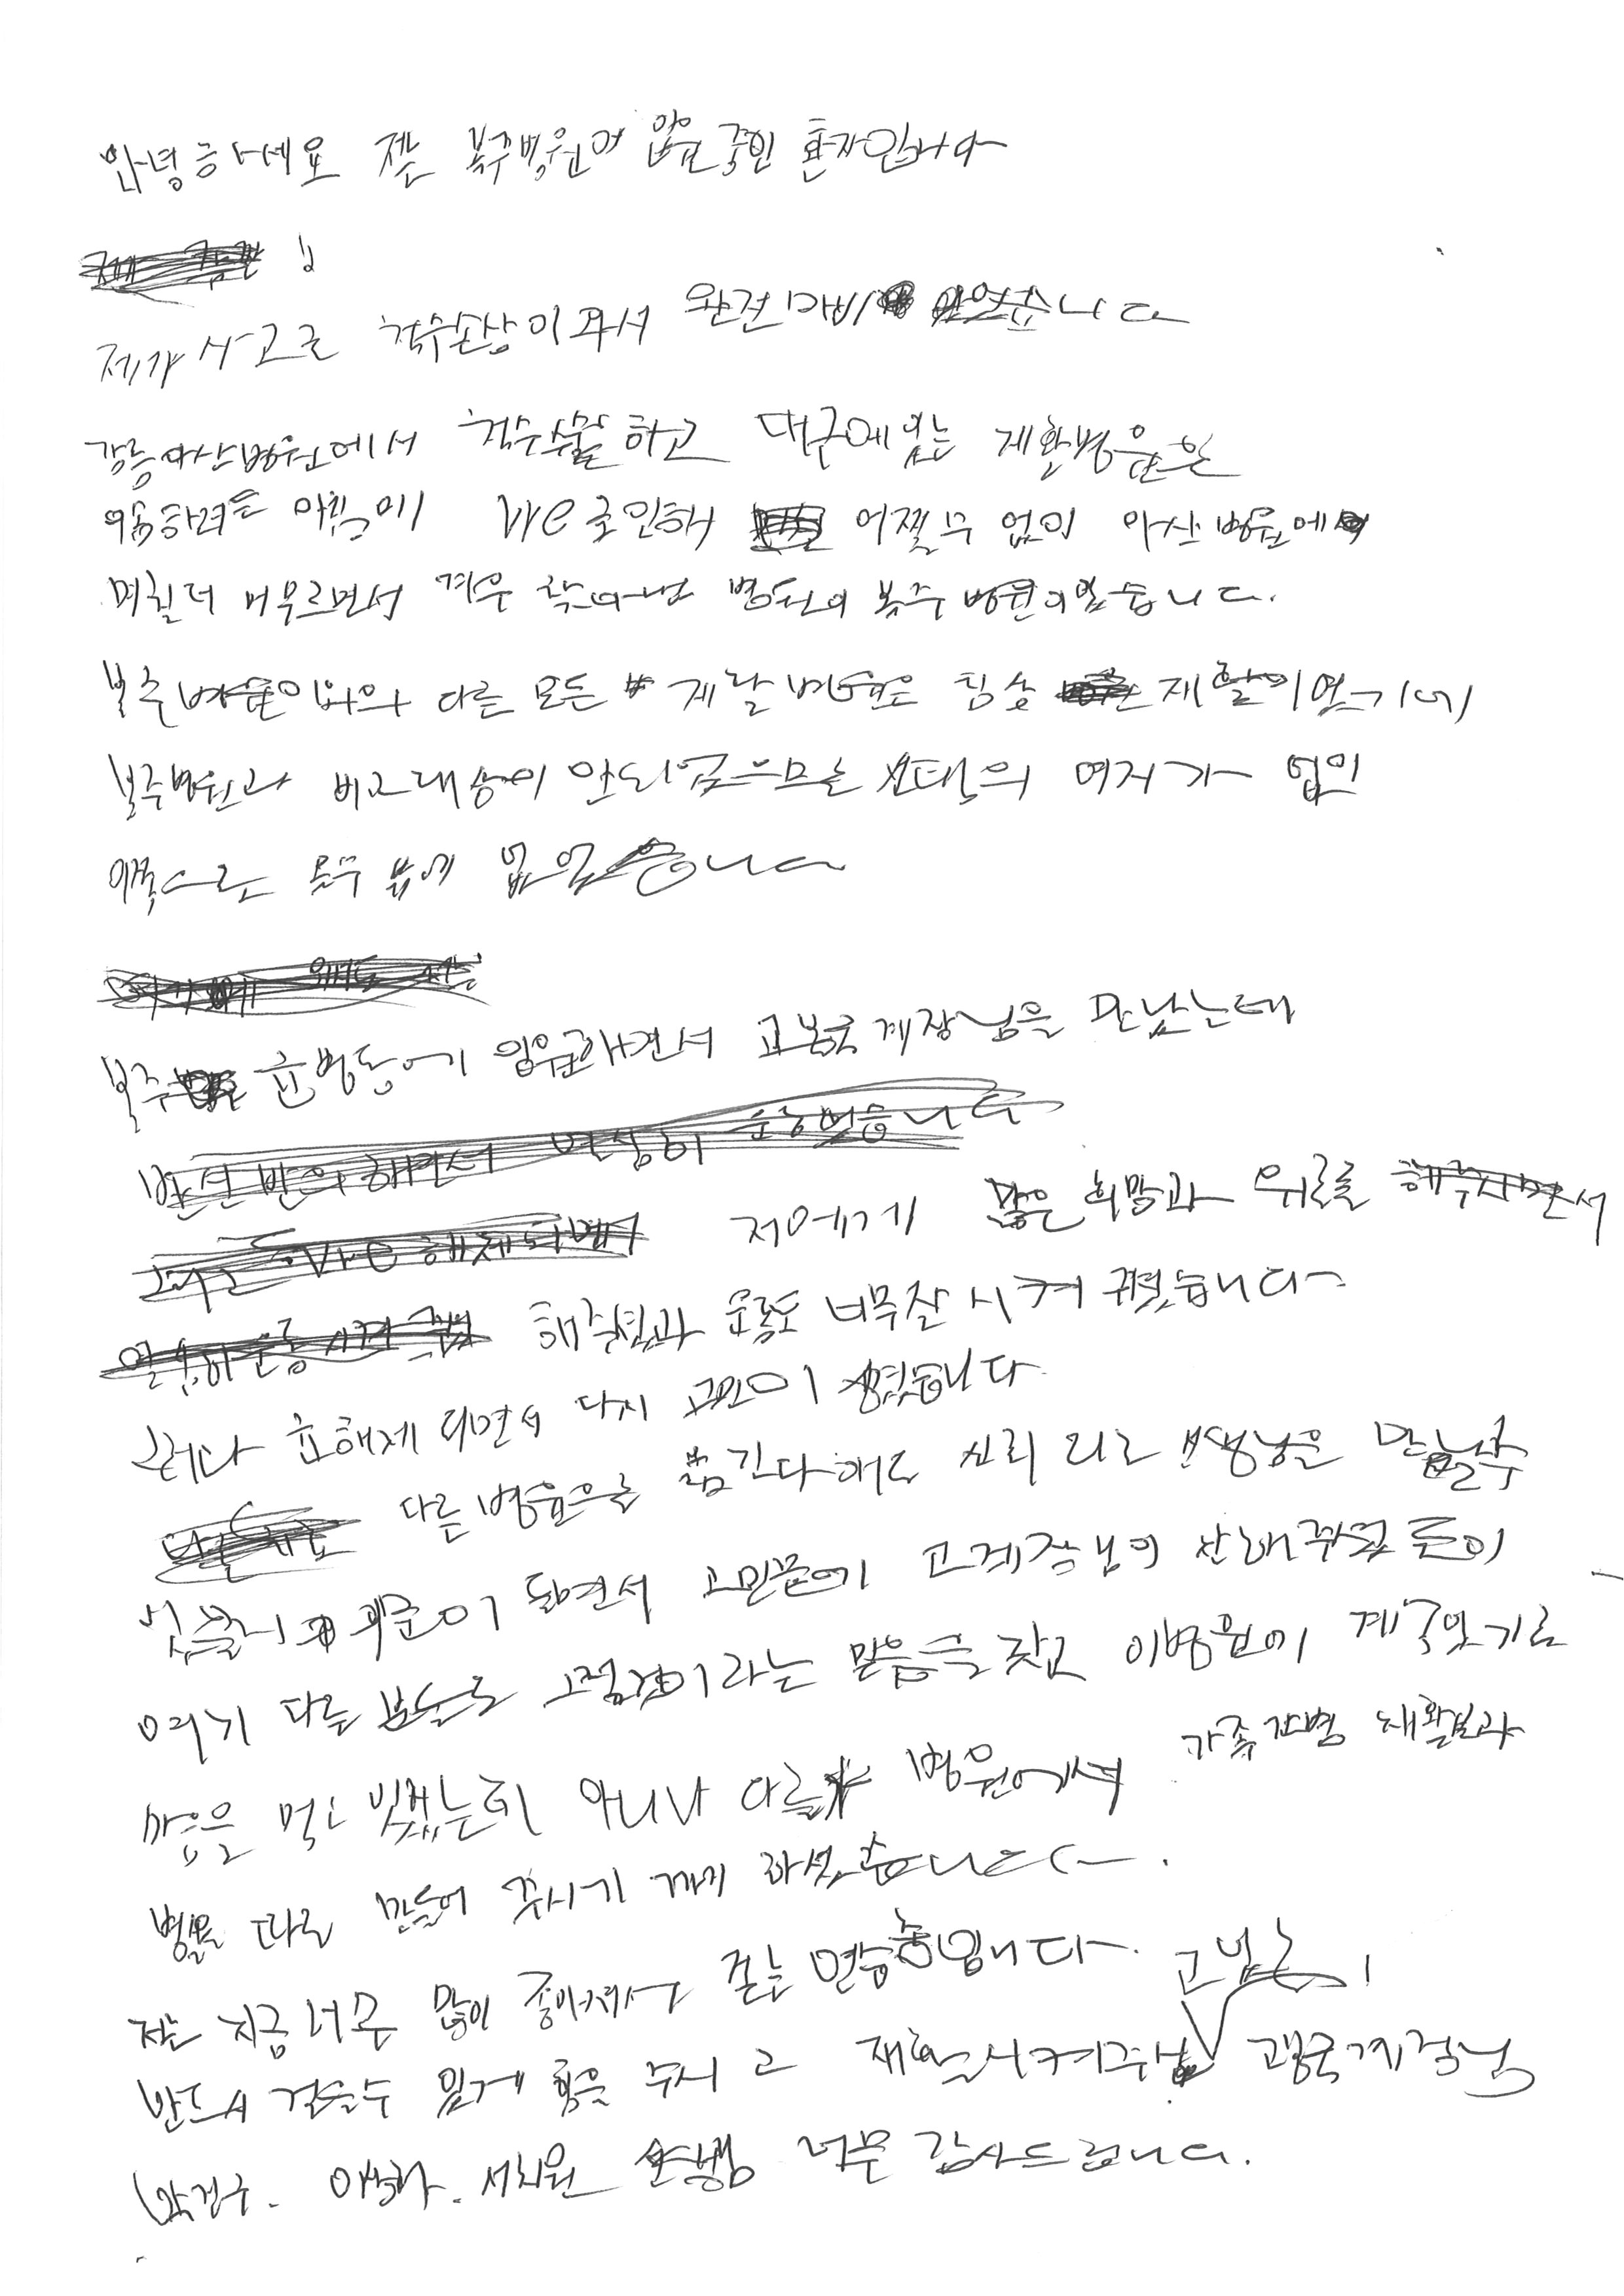 안녕하세요 저는 복주병원에 입원중인 환자입니다
제가 사고로 척수손상이 와서 완전마비 였습니다
강릉아산병원에서 척수수술하고 대구에 있는 재활병원을
이송하려는 아침에 Vre로 인해 어쩔수 없이 아산병원에
며칠더 머무르면서 겨우 찾아낸 병원이 복주병원이였습니다.
복주병원이외의 다른 모든 재활병원은 침상 재활이였기에
복주병원과 비교대상이 안되었으므로 선택의 여지가 없이
이쪽으로 올수 밖에 없었습니다
복주 병동에 입원하면서 고봉국 계장님을 만났는데
저에게 많은 희망과 위로를
해주셨고 운동도 너무잘 시켜 주셨습니다
그러나 해제 되면서 다시 고민이 생겼습니다
다른병원으로 옮긴다해도 선생님을 만날수
있을지 의문이 들면서 고민끝에 고계장님이 산해주셨
여기 다른 분들도 그럴것이라는 믿음을 갖고 이병원에 계속있기로
마음을 먹고 있었는데 아니나 다를까 병원에서 가족간병 재활
병동을 따로 만들어 주시기 까지 하셨습니다.
저는 지금 너무 많이 좋아져서 걷는 연습중입니다.
반드시 걸을수 있게 힘을 주시고 재활시켜주신 고봉국 계장님
박건우. 이상화. 서희원 선생님 너무 감사드립니다.